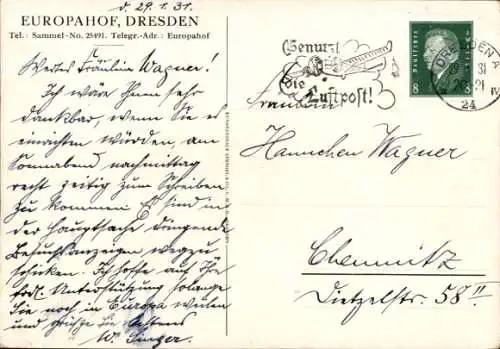 d. 29.1.31.
EUROPAHOF, DRESDEN
Tel.: Sammel-No. 25491. Telegr.-Adr.: Europahof
Wertes Fräulein Wagner!
Ich wäre Ihnen sehr
dankbar, wenn Sie es
einrichten würden, am
Sonnabend nachmittag
recht zeitig zum Schreiben
zu kommen. Es sind in
der Hauptsache dringende
Besuchsanzeigen wegzu-
schicken. Ich hoffe auf Ihre
frdl. Unterstützung solange
Sie noch in Europa weilen
und grüße Sie bestens
W. Singer.
Benutzt
die
Luftpost!
Deutsches Reich
8 8
DRESDEN
31
21
24
Fräulein
Hannchen Wagner
Chemnitz
Dietzelstr. 58 II